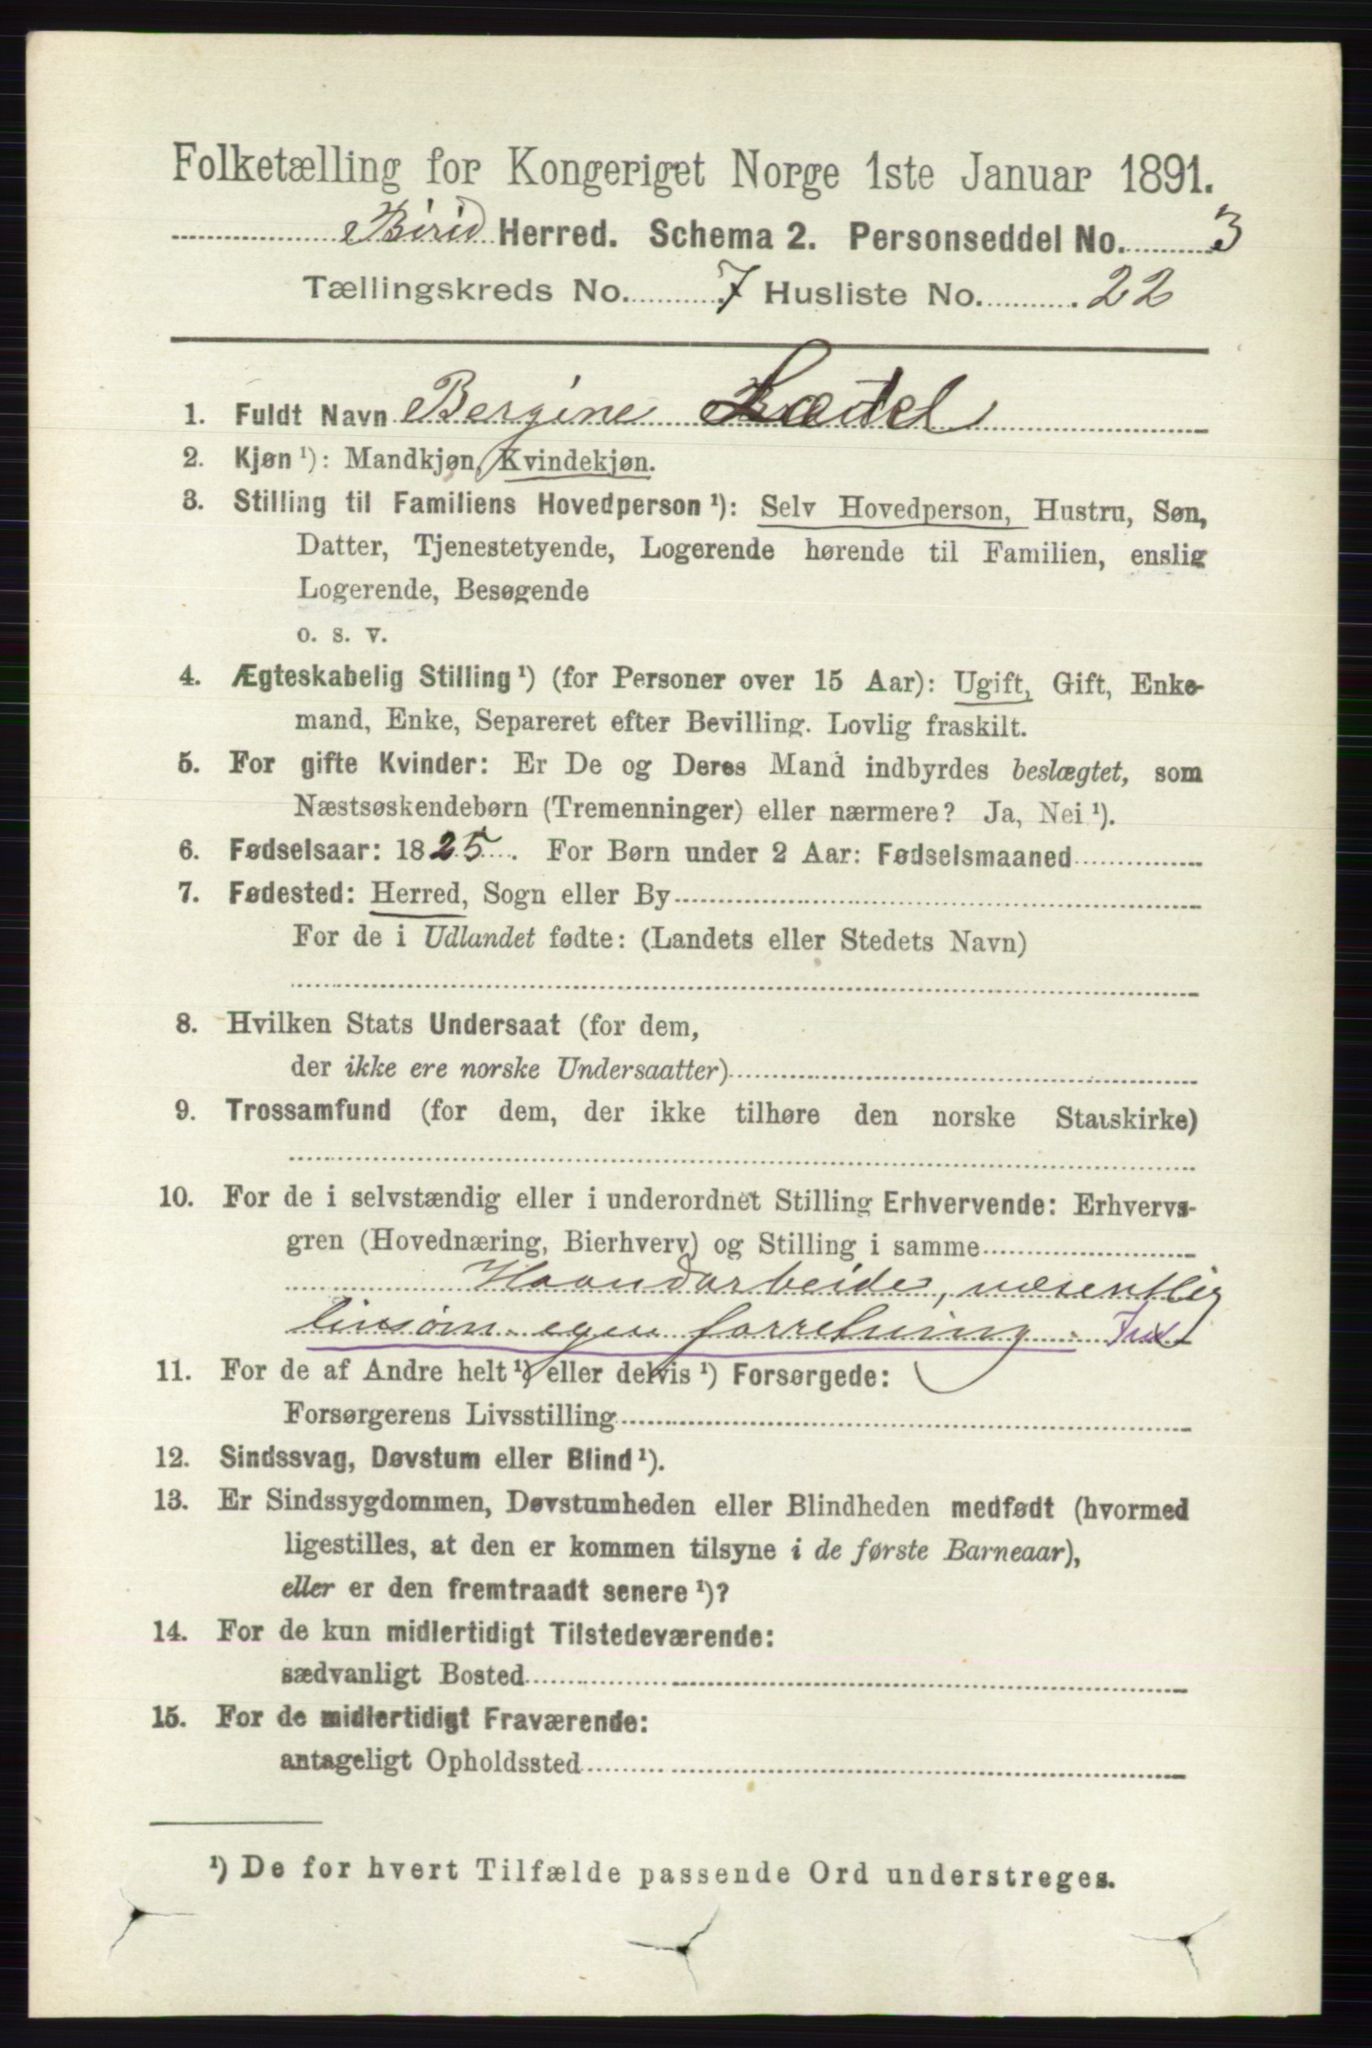 Folketælling for Kongeriget Norge 1ste Januar 1891.
Birid Herred. Schema 2. Personseddel No. 3
Tællingskreds No. 7 Husliste No. 22
1. Fuldt Navn Bergine
2. Kjøn ¹): Mandkjøn, Kvindekjøn.
3. Stilling til Familiens Hovedperson ¹): Selv Hovedperson, Hustru, Søn,
Datter, Tjenestetyende, Logerende hørende til Familien, enslig
Logerende, Besøgende
o. s. v.
4. Ægteskabelig Stilling ¹) (for Personer over 15 Aar): Ugift, Gift, Enke-
mand, Enke, Separeret efter Bevilling. Lovlig fraskilt.
5. For gifte Kvinder: Er De og Deres Mand indbyrdes beslægtet, som
Næstsøskendebørn (Tremenninger) eller nærmere? Ja, Nei ¹).
6. Fødselsaar: 1825. For Børn under 2 Aar: Fødselsmaaned
7. Fødested: Herred, Sogn eller By
For de i Udlandet fødte: (Landets eller Stedets Navn)
8. Hvilken Stats Undersaat (for dem,
der ikke ere norske Undersaatter)
9. Trossamfund (for dem, der ikke tilhøre den norske Statskirke)
10. For de i selvstændig eller i underordnet Stilling Erhvervende: Erhvervs-
gren (Hovednæring, Bierhverv) og Stilling i samme
Haandarbeide, væsentlig
linsøm egen forretning.
11. For de af Andre helt ¹) eller delvis ¹) Forsørgede:
Forsørgerens Livsstilling
12. Sindssvag, Døvstum eller Blind ¹).
13. Er Sindssygdommen, Døvstumheden eller Blindheden medfødt (hvormed
ligestilles, at den er kommen tilsyne i de første Barneaar),
eller er den fremtraadt senere ¹)?
14. For de kun midlertidigt Tilstedeværende:
sædvanligt Bosted
15. For de midlertidigt Fraværende:
antageligt Opholdssted
¹) De for hvert Tilfælde passende Ord understreges.